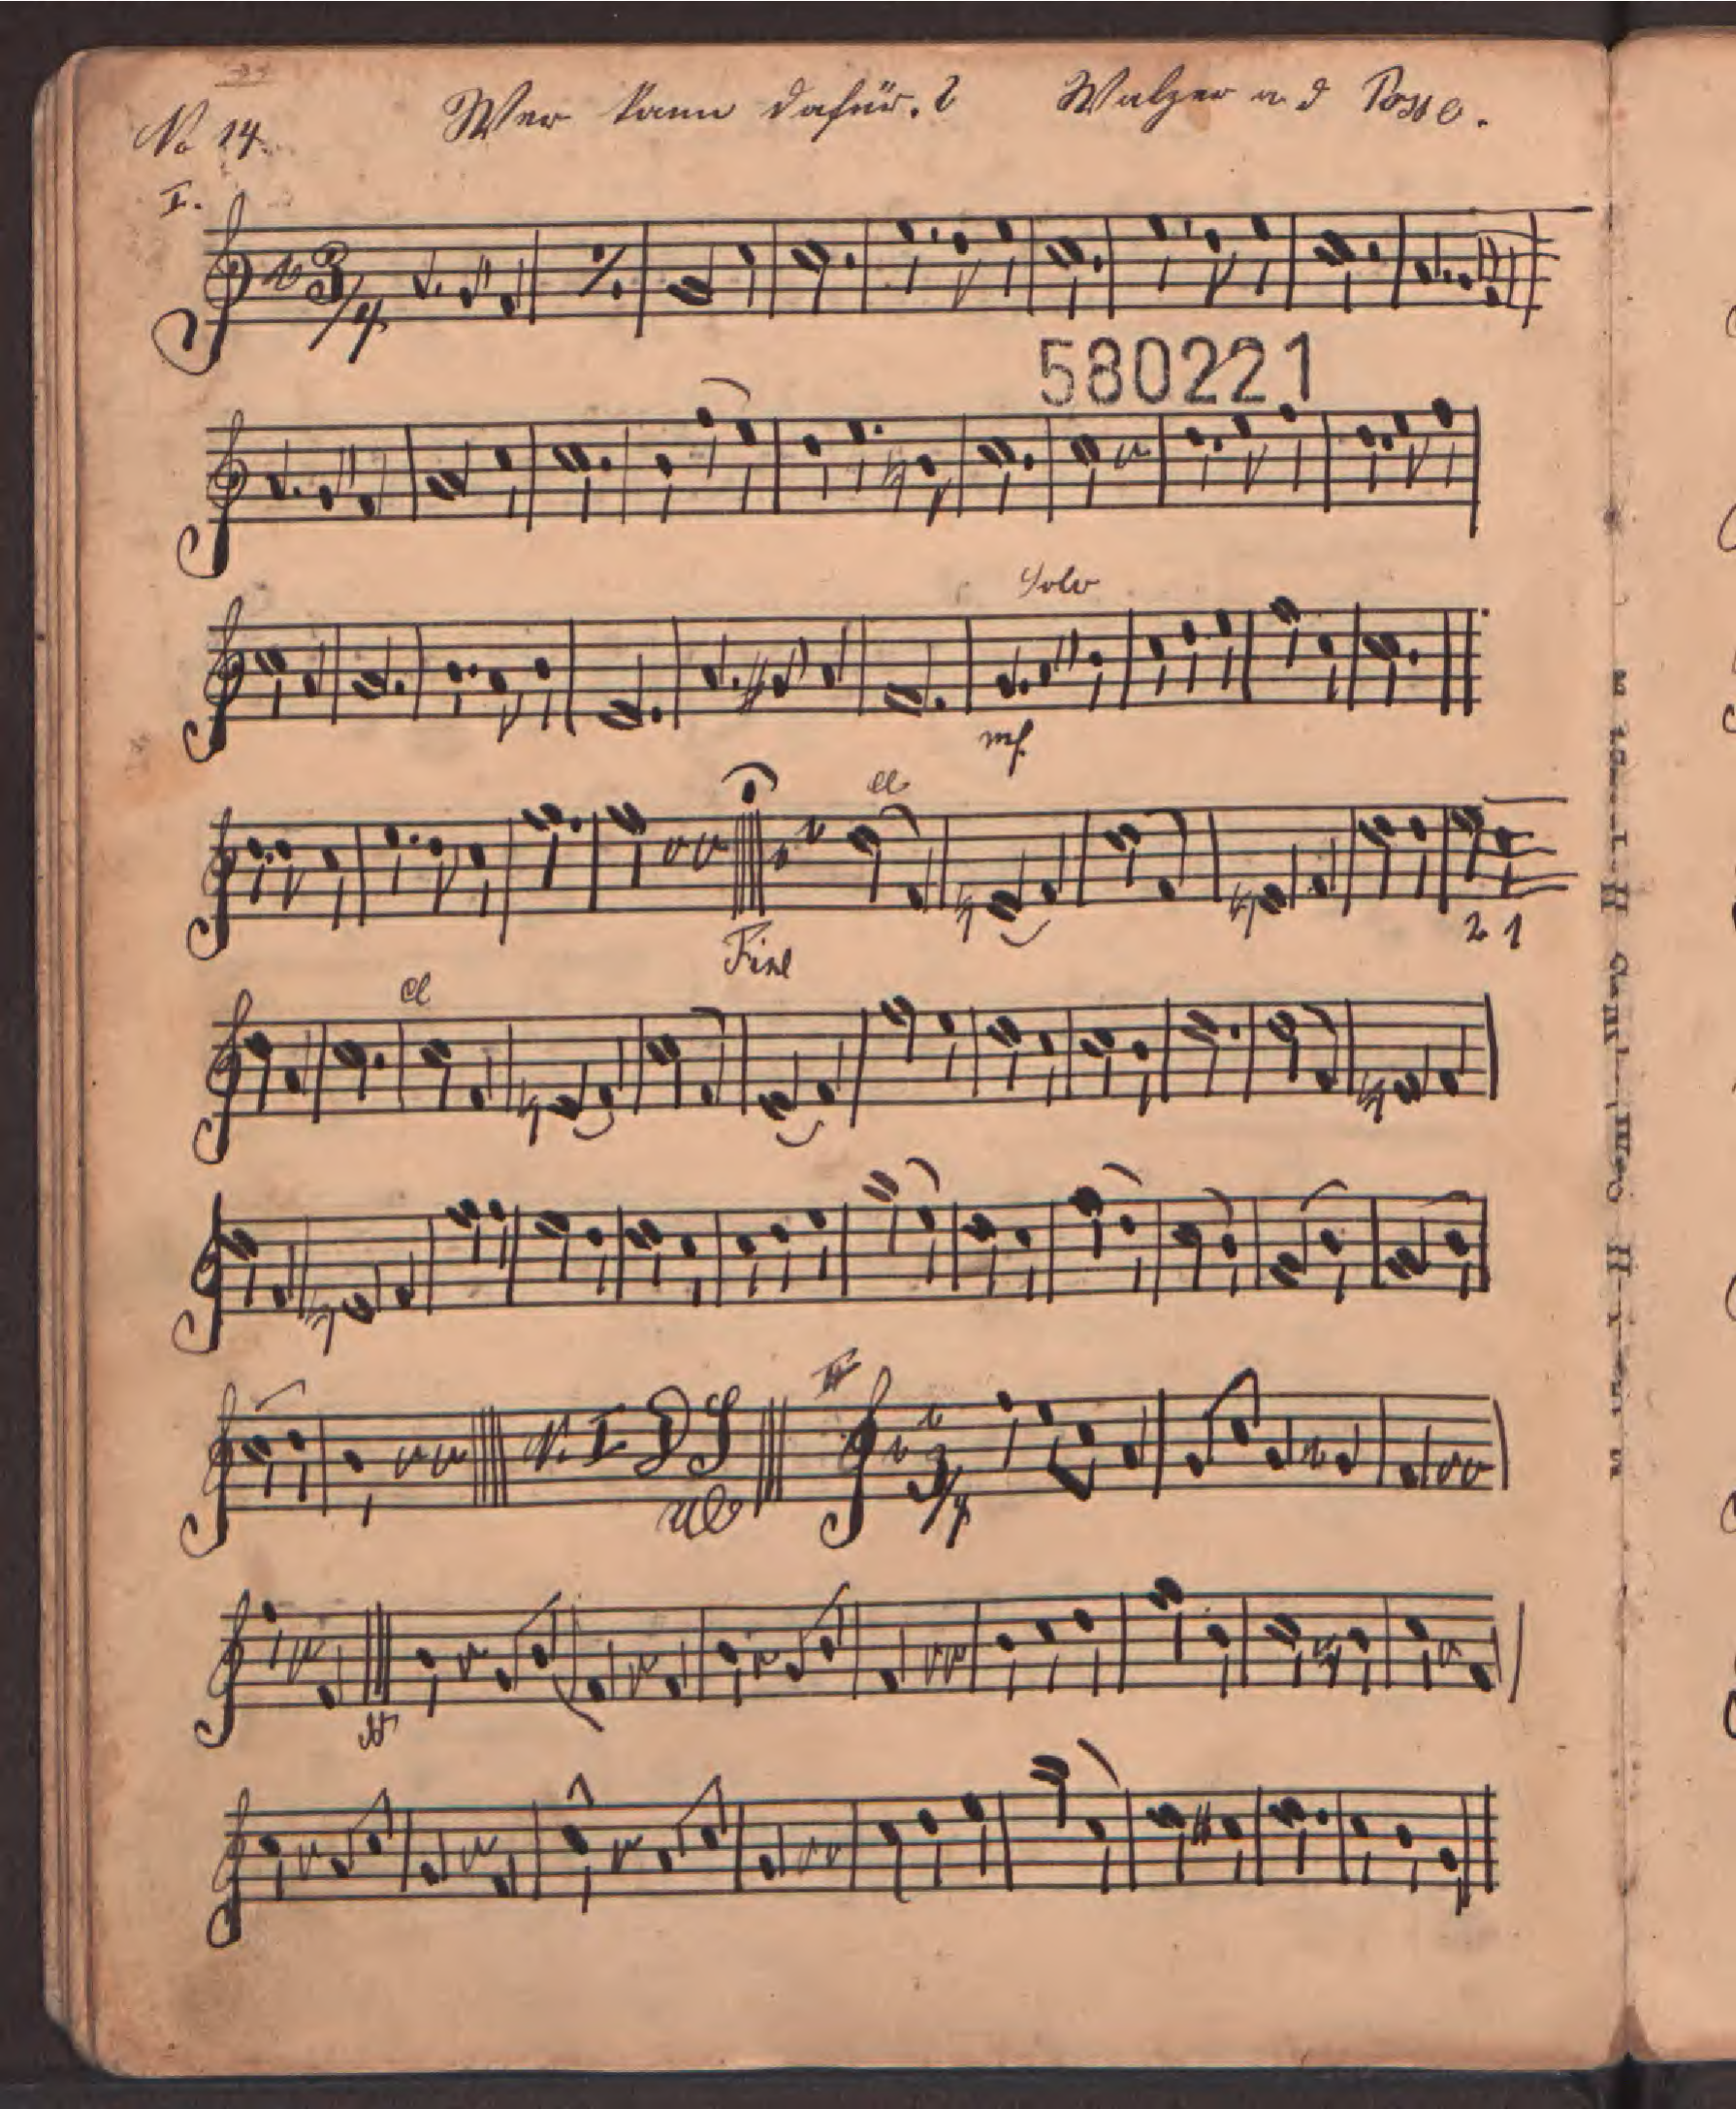 No 14. Wer kann dafür.? Walzer a. d Posse.
I.
3/4
580221
Solo
mf.
Fine
2 1
N. I D S
II
3/4